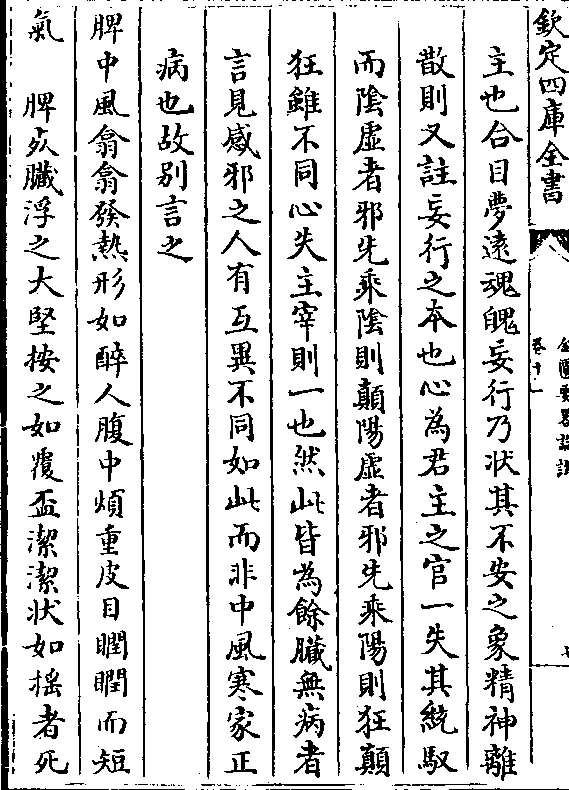 欽定四庫全書
金匱要畧論註
卷十一
主也合目夢遠魂魄妄行乃状其不安之象精神離
散則又註妄行之本也心為君主之官一失其統馭
而陰虛者邪先乗陰則顛陽虛者邪先乗陽則狂顛
狂雖不同心失主宰則一也然此皆為餘臟無病者
言見感邪之人有互異不同如此而非中風寒家正
病也故别言之
脾中風翕翕發熱形如醉人腹中煩重皮目瞤瞤而短
氣　脾死臟浮之大堅按之如覆盃潔潔状如揺者死